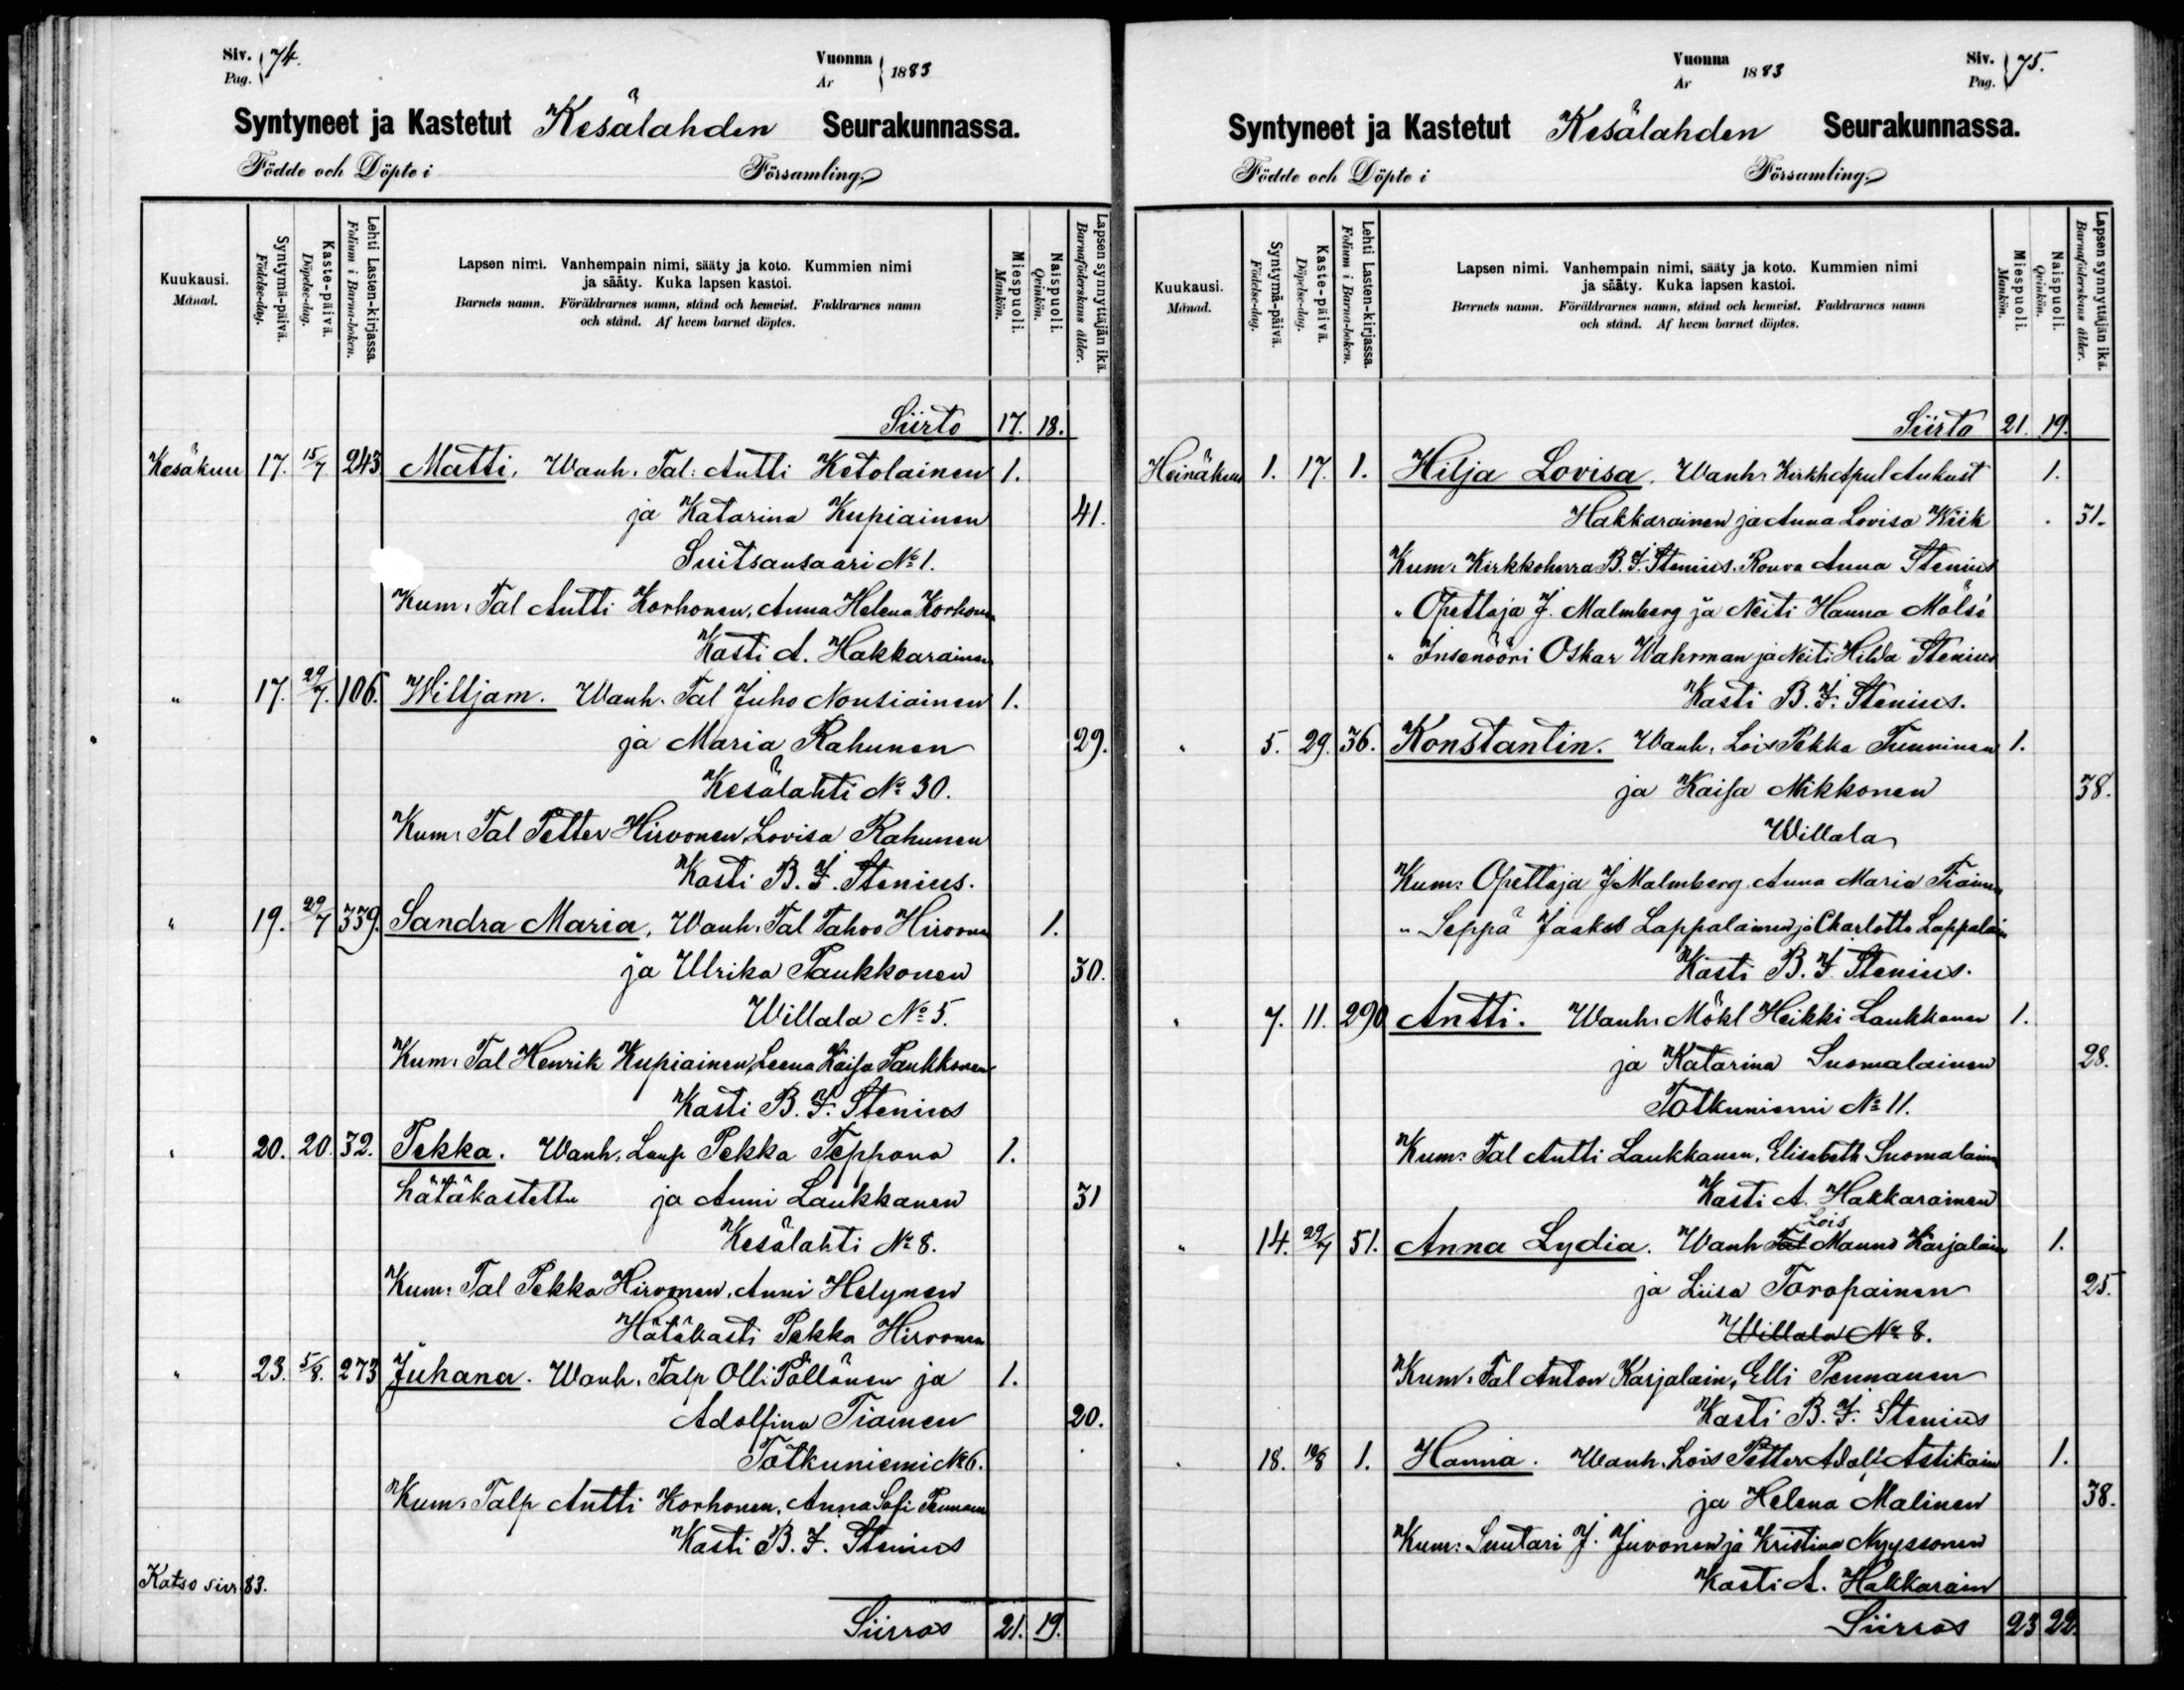 Siv. 74.
Pag.
Vuonna 1883
År
Syntyneet ja Kastetut Kesälahden Seurakunnassa.
Födde och Döpte i Församling.
Kuukausi.
Månad.
Syntymä-päivä.
Födelse-dag.
Kaste-päivä.
Döpelse-dag.
Lehti Lasten-kirjassa.
Folium i Barna-boken.
Lapsen nimi. Vanhempain nimi, sääty ja koto. Kummien nimi
ja sääty. Kuka lapsen kastoi.
Barnets namn. Föräldrarnes namn, stånd och hemvist. Faddrarnes namn
och stånd. Af hvem barnet döptes.
Miespuoli.
Mankön.
Naispuoli.
Qvinkön.
Lapsen synnyttäjän ikä.
Barnaföderskans ålder.
Siirto 17. 18.
Kesäkuu 17. 15/7 243 Matti. Wanh. Tal: Antti Ketolainen 1.
ja Katarina Kupiainen 41.
Suitsansaari No 1.
Kum. Tal Antti Korhonen, Anna Helena Korhonen
Kasti A. Hakkarainen
" 17. 29/7. 106. Willijam. Wanh. Tal Juho Nousiainen 1.
ja Maria Rahunen 29.
Kesälahti No 30.
Kum. Tal Petter Hirvonen, Lovisa Rahunen
Kasti B. F. Stenius.
" 19. 29/7 339. Sandra Maria. Wanh. Tal Tahvo Hirvonen 1.
ja Ulrika Paukkonen 30.
Willala No 5.
Kum. Tal Henrik Kupiainen, Leena Kaisa Paukkonen
Kasti B. F. Stenius
" 20. 20. 32. Pekka. Wanh. Lamp Pekka Teppana 1.
hätäkastettu ja Anni Laukkanen 31
Kesälahti No 8.
Kum. Tal Pekka Hirvonen, Anni Helynen
Hätäkasti Pekka Hirvonen
" 23. 5/8. 273 Juhana. Wanh. Talp Olli Pöllänen ja 1.
Adolfina Tiainen 20.
Totkuniemi No 6.
Kum. Talp Antti Korhonen, Anna Sofi Pennanen
Kasti B. F. Stenius
Katso siv. 83.
Siirros 21. 19.
Vuonna 1883
År
Siv. 75.
Pag.
Syntyneet ja Kastetut Kesälahden Seurakunnassa.
Födde och Döpte i Församling.
Kuukausi.
Månad.
Syntymä-päivä.
Födelse-dag.
Kaste-päivä.
Döpelse-dag.
Lehti Lasten-kirjassa.
Folium i Barna-boken.
Lapsen nimi. Vanhempain nimi, sääty ja koto. Kummien nimi
ja sääty. Kuka lapsen kastoi.
Barnets namn. Föräldrarnes namn, stånd och hemvist. Faddrarnes namn
och stånd. Af hvem barnet döptes.
Miespuoli.
Mankön.
Naispuoli.
Qvinkön.
Lapsen synnyttäjän ikä.
Barnaföderskans ålder.
Siirto 21. 19.
Heinäkuu 1. 17. 1. Hilja Lovisa. Wanh. Kirkh Apul Aukust 1.
Hakkarainen ja Anna Lovisa Kiik 31.
Kum. Kirkkoherra B. F. Stenius. Rouva Anna Stenius
" Opettaja J. Malmberg ja Neiti Hanna Mölsi
" Insenööri Oskar Wahrman ja Neiti Hilda Stenius
Kasti B. F. Stenius.
" 5. 29. 36. Konstantin. Wanh. Lois Pekka Tunninen 1.
ja Kaisa Mikkonen 38.
Willala
Kum: Opettaja J. Malmberg. Anna Maria Tiainen
" Seppä Jaakob Lappalainen ja Charlotta Lappalain
Kasti B. F. Stenius.
" 7. 11. 290 Antti. Wanh. Mökl Heikki Laukkanen 1.
ja Katarina Suomalainen 28.
Totkuniemi No 11.
Kum: Tal Antti Laukkanen, Elisabeth Suomalainen
Kasti A. Hakkarainen
Lois
" 14. 29/7 51. Anna Lydia. Wanh Tal Maunu Karjalain 1.
ja Liisa Toropainen 25.
Willala No 8.
Kum. Tal Anton Karjalain, Elli Pennanen
Kasti B. F. Stenius
" 18. 10/8 1. Hanna. Wanh. Lois Petter Adolf Astikain 1.
ja Helena Malinen 38.
Kum: Suutari J. Juvonen ja Kristina Nyyssonen
Kasti A. Hakkarain
Siirros 23 22.